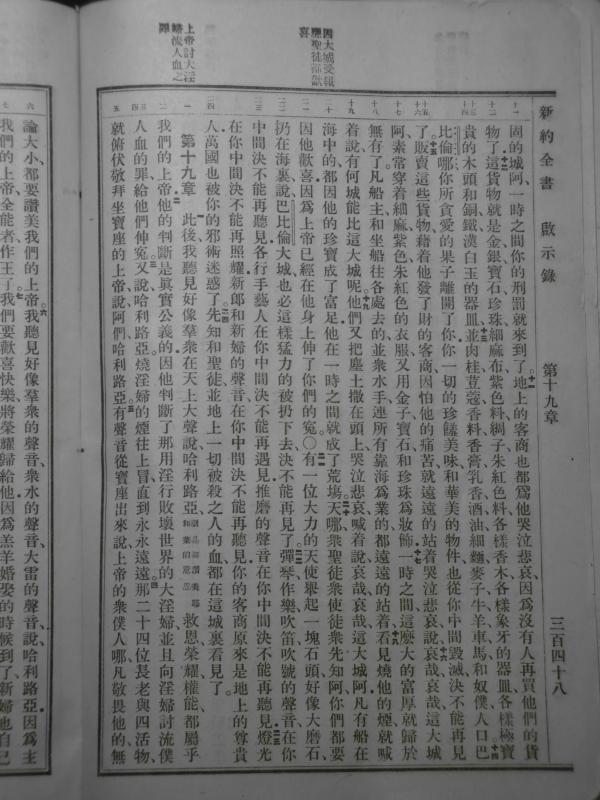 新約全書 啟示錄 第十九章 三百四十八
因大城受報
應聖徒都歡
喜
上帝討大淫
婦流人血之
罪
固的城阿一時之間你的刑罰就來到了地上的客商也都爲他哭泣悲哀因爲沒有人再買他們的貨
物了這貨物就是金銀寶石珍珠細麻布紫色料綢子朱紅色料各樣香木各樣象牙的器皿各樣極寶
貴的木頭和銅鐵漢白玉的器皿並肉桂荳蔻香料香膏乳香酒油細麵麥子牛羊車馬和奴僕人口巴
比倫哪你所貪愛的果子離開了你你一切的珍饈美味和華美的物件也從你中間毀滅決不能再見
了販賣這些貨物藉着他發了財的客商因怕他的痛苦就遠遠的站着哭泣悲哀說哀哉哀哉這大城
阿素常穿着細麻紫色朱紅色的衣服又用金子寶石和珍珠爲妝飾一時之間這麽大的富厚就歸於
無有了凡船主和坐船往各處去的並衆水手連所有靠海爲業的都遠遠的站着看見燒他的煙就喊
着說有何城能比這大城呢他們又把塵土撒在頭上哭泣悲哀喊着說哀哉哀哉這大城阿凡有船在
海中的都因他的珍寶成了富足他在一時之間就成了荒塲天哪衆聖徒衆使徒衆先知阿你們都要
因他歡喜因爲上帝已經在他身上伸了你們的冤○有一位大力的天使舉起一塊石頭好像大磨石
扔在海裏說巴比倫大城也必這樣猛力的被扔下去決不能再見了彈琴作樂吹笛吹號的聲音在你
中間決不能再聽見各行手藝人在你中間決不能再遇見推磨的聲音在你中間決不能再聽見燈光
在你中間決不能再照耀新郎和新婦的聲音在你中間決不能再聽見你的客商原來是地上的尊貴
人萬國也被你的邪術迷惑了先知和聖徒並地上一切被殺之人的血都在這城裏看見了
第十九章 此後我聽見好像羣衆在天上大聲說哈利路亞救恩榮耀權能都屬乎
我們的上帝他的判斷是眞實公義的因他判斷了那用淫行敗壞世界的大淫婦並且向淫婦討流僕
人血的罪給他們伸冤又說哈利路亞燒淫婦的煙往上冒直到永永遠遠那二十四位長老與四活物
就俯伏敬拜坐寶座的上帝說阿們哈利路亞有聲音從寶座出來說上帝的衆僕人哪凡敬畏他的無
論大小都要讚美我們的上帝我聽見好像羣衆的聲音衆水的聲音大雷的聲音說哈利路亞因爲主
我們的上帝全能者作王了我們要歡喜快樂將榮耀歸給他因爲羔羊婚娶的時候到了新婦也自己